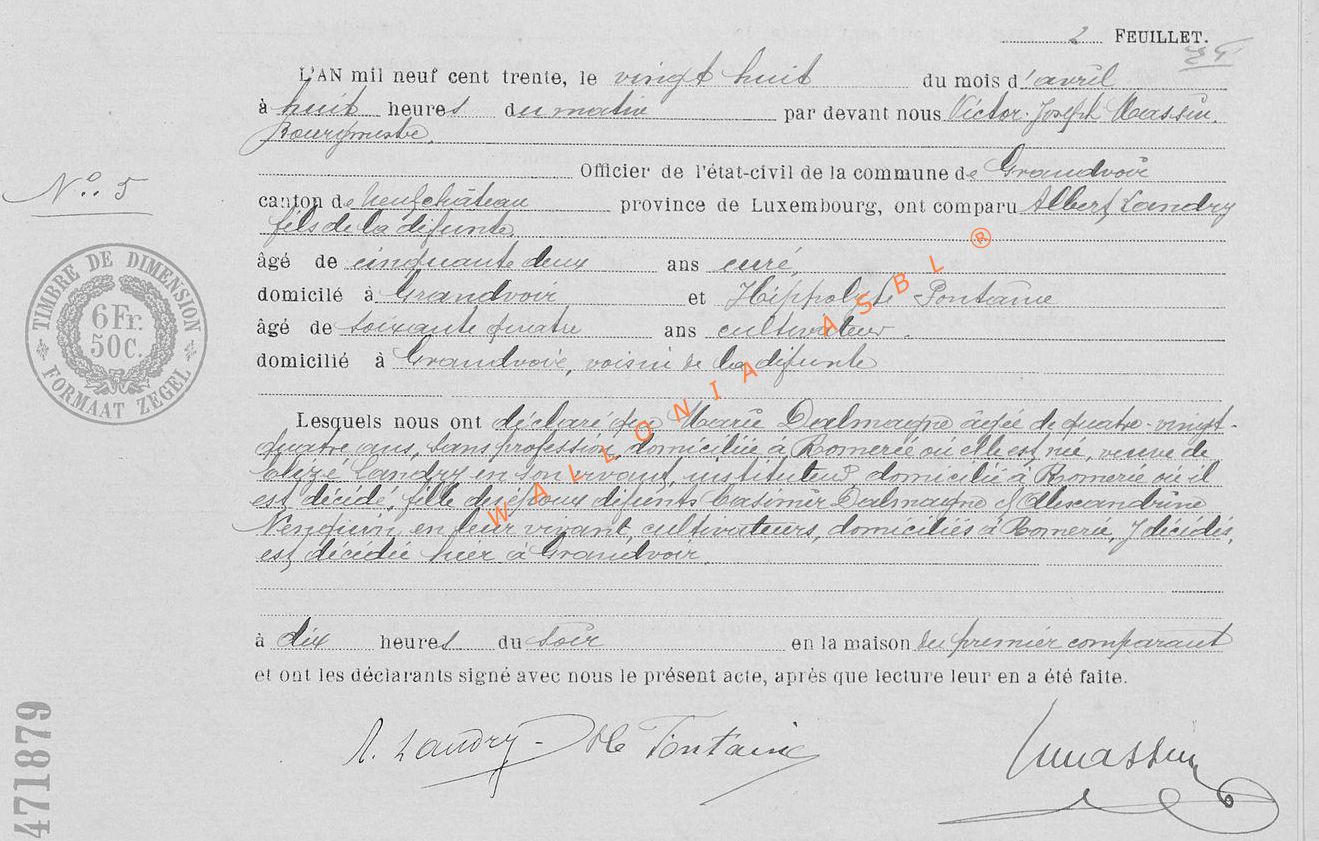 2 FEUILLET.
L'AN mil neuf cent trente, le vingt huit du mois d'avril
à huit heures du matin par devant nous Victor Joseph Massin,
Bourgmestre,
Officier de l'état-civil de la commune de Grandvoir
N° 5
canton de Neufchâteau province de Luxembourg, ont comparu Albert Landry
fils de la défunte,
âgé de cinquante deux ans curé,
domicilé à Grandvoir et Hippolyte Fontaine
âgé de soixante quatre ans cultivateur.
domicilié à Grandvoir, voisin de la défunte
TIMBRE DE DIMENSION
6 Fr.
50 C.
FORMAAT ZEGEL
Lesquels nous ont déclaré que Marie Dalmagne âgée de quatre-vingt-
quatre ans, sans profession, domiciliée à Romerée où elle est née, veuve de
Landry en son vivant, instituteur, domicilié à Romerée où il
est décédé, fille des époux défunts Casimir Dalmagne et Alexandrine
en leur vivant, cultivateurs, domiciliés à Romerée, y décédés,
est décédée hier à Grandvoir,
à dix heures du soir en la maison du premier comparant
et ont les déclarants signé avec nous le présent acte, après que lecture leur en a été faite.
A. Landry Hte Fontaine VMassin
471879
WALLONIA ASBL ®